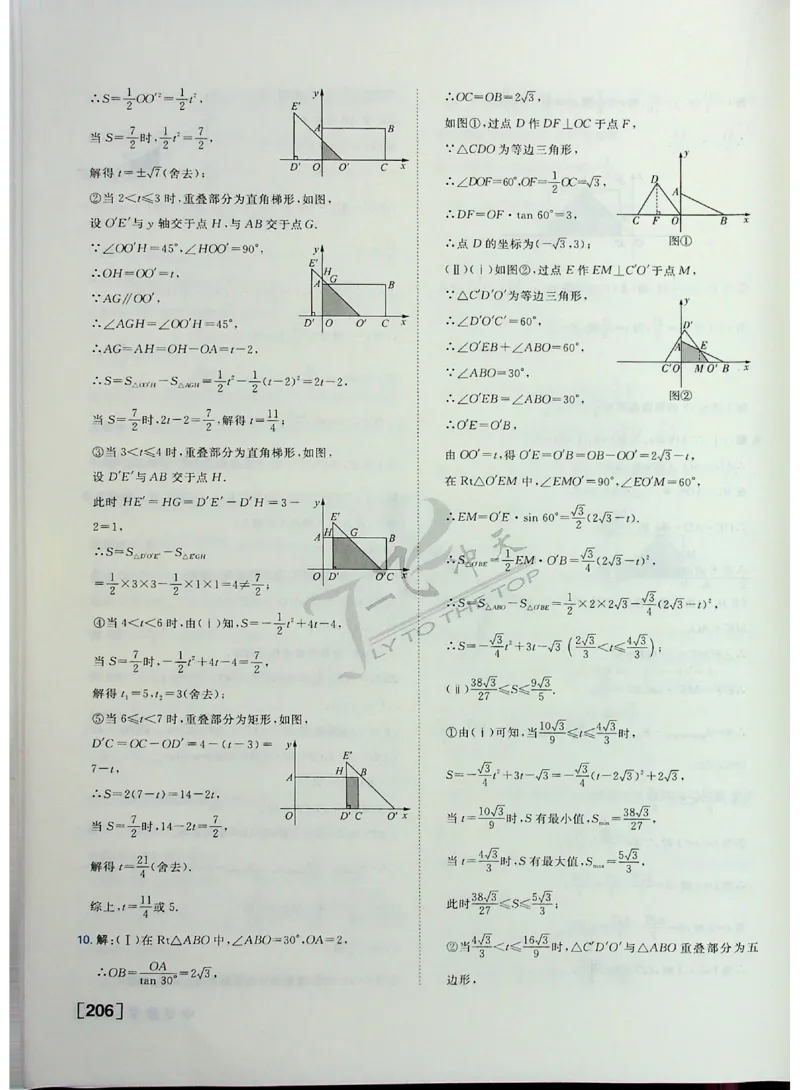 ∴S=1/2OO′²=1/2t²,
当 S=7/2时,1/2t²=7/2,
解得 t=±√7(舍去);
②当 2<t≤3 时,重叠部分为直角梯形,如图,
设 O′E′与 y 轴交于点 H,与 AB 交于点 G.
∵∠OO′H=45°,∠HOO′=90°,
∴OH=OO′=t,
∵AG∥OO′,
∴∠AGH=∠OO′H=45°,
∴AG=AH=OH-OA=t-2,
∴S=S△OO′H-S△AGH=1/2t²-1/2(t-2)²=2t-2,
当 S=7/2时,2t-2=7/2,解得 t=11/4;
③当 3<t≤4 时,重叠部分为直角梯形,如图,
设 D′E′与 AB 交于点 H.
此时 HE′=HG=D′E′-D′H=3-
2=1,
∴S=S△D′O′E′-S△E′GH
=1/2×3×3-1/2×1×1=4≠7/2;
④当 4<t<6 时,由(ⅰ)知,S=-1/2t²+4t-4,
当 S=7/2时,-1/2t²+4t-4=7/2,
解得 t₁=5,t₂=3(舍去);
⑤当 6≤t<7 时,重叠部分为矩形,如图,
D′C=OC-OD′=4-(t-3)=
7-t,
∴S=2(7-t)=14-2t,
当 S=7/2时,14-2t=7/2,
解得 t=21/4(舍去).
综上,t=11/4或 5.
10. 解:(Ⅰ)在 Rt△ABO 中,∠ABO=30°,OA=2,
∴OB=OA/tan 30°=2√3,
y
E′
A B
D′ O O′ C x
y
E′
H
A G B
D′ O O′ C x
y
E′
A H G B
O D′ O′C x
y
E′
A H B
O D′ C O′ x
∴OC=OB=2√3,
如图①,过点 D 作 DF⊥OC 于点 F,
∵△CDO 为等边三角形,
∴∠DOF=60°,OF=1/2OC=√3,
∴DF=OF·tan 60°=3,
∴点 D 的坐标为(-√3,3);
(Ⅱ)(ⅰ)如图②,过点 E 作 EM⊥C′O′于点 M,
∵△C′D′O′为等边三角形,
∴∠D′O′C′=60°,
∴∠O′EB+∠ABO=60°,
∵∠ABO=30°,
∴∠O′EB=∠ABO=30°,
∴O′E=O′B,
由 OO′=t,得 O′E=O′B=OB-OO′=2√3-t,
在 Rt△O′EM 中,∠EMO′=90°,∠EO′M=60°,
∴EM=O′E·sin 60°=√3/2(2√3-t).
∴S△O′BE=1/2EM·O′B=√3/4(2√3-t)²,
∴S=S△ABO-S△O′BE=1/2×2×2√3-√3/4(2√3-t)²,
∴S=-√3/4t²+3t-√3(2√3/3<t≤4√3/3);
(ⅱ)38√3/27≤S≤9√3/5.
①由(ⅰ)可知,当10√3/9≤t≤4√3/3时,
S=-√3/4t²+3t-√3=-√3/4(t-2√3)²+2√3,
当 t=10√3/9时,S 有最小值,Smin=38√3/27,
当 t=4√3/3时,S 有最大值,Smax=5√3/3,
此时38√3/27≤S≤5√3/3;
②当4√3/3<t≤16√3/9时,△C′D′O′与△ABO 重叠部分为五
边形,
y
D
A
C F O B x
图①
y
D′
A E
C′O M O′ B x
图②
飞一冲天
FLY TO THE TOP
[206]